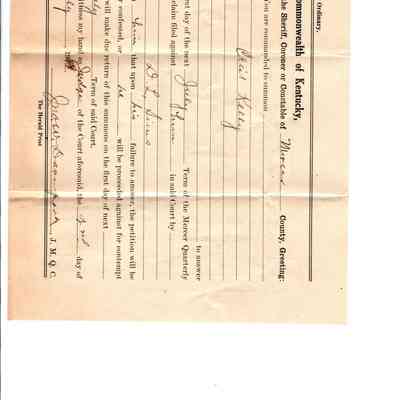 Ordinary.
ommonwealth of Kentucky,
he Sheriff, Coroner or Constable of Mercer County, Greeting:
ou are commanded to summon
Kelly
to answer
rst day of the next July Term of the Mercer Quarterly
claim filed against him in said Court by
him that upon his failure to answer, the petition will be
r confessed, or he will be proceeded against for contempt
will make due return of this summons on the first day of next
uly Term of said Court.
itness my hand as Judge of the Court aforesaid, the 3rd day of
ly 19
J. M. Q. C.
The Herald Print